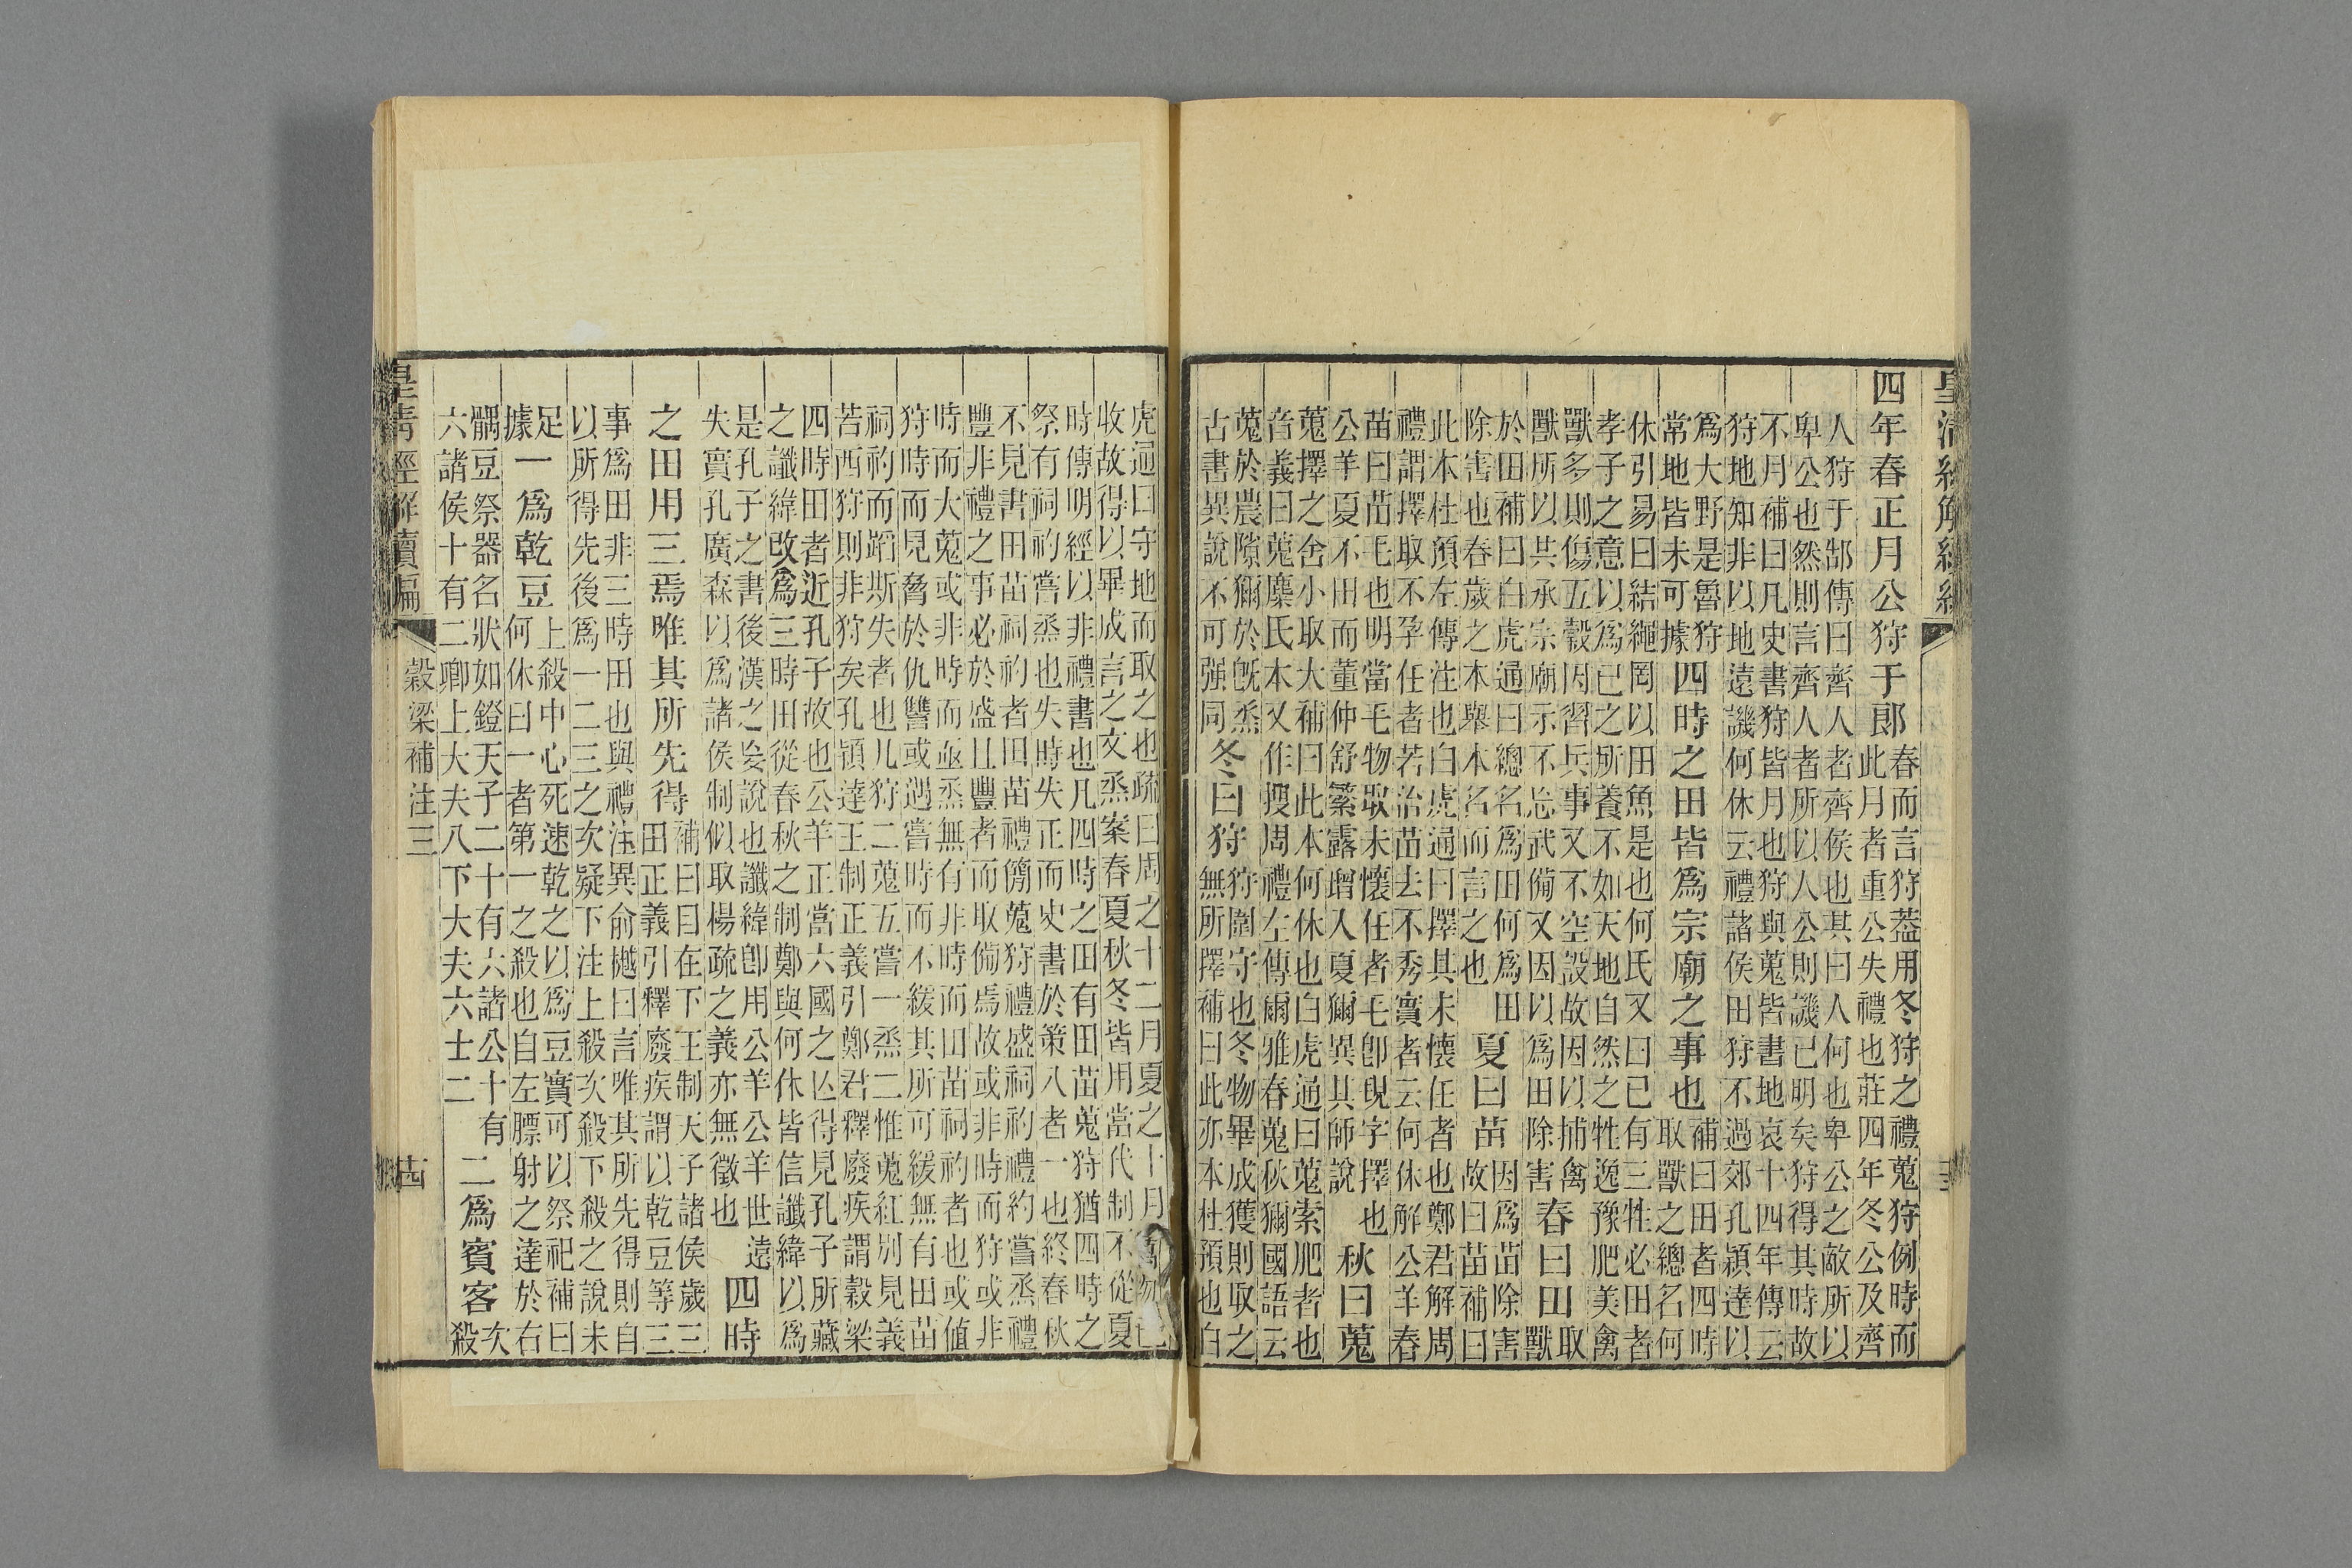 皇清經解續編
四年春正月公狩于郎
春而言狩蓋用冬狩之禮蒐狩例時而
此月者重公失禮也莊四年冬公及齊
人狩于郜傳曰齊人者齊侯也其曰人何也卑公之敵所以
卑公也然則言齊人者所以人公則譏已明矣狩得其時故
不月補曰凡史書狩皆月也狩與蒐皆書地哀十四年傳云
狩地知非以地遠譏何休云禮諸侯田狩不過郊孔穎達以
爲大野是魯狩
常地皆未可據
四時之田皆爲宗廟之事也
補曰田者四時
取獸之總名何
休引易曰結繩罔以田魚是也何氏又曰已有三牲必田者
孝子之意以爲已之所養不如天地自然之牲逸豫肥美禽
獸多則傷五穀因習兵事又不空設故因以捕禽
獸所以共承宗廟示不忘武備又因以爲田除害
春曰田
取
獸
於田補曰白虎通曰總名爲田何爲田
除害也春歲之本舉本名而言之也
夏曰苗
因爲苗除害
故曰苗補曰
此本杜預左傳注也白虎通曰擇其未懷任者也鄭君解周
禮謂擇取不孕任者若治苗去不秀實者云何休解公羊春
苗曰苗毛也明當毛物取未懷任者毛卽覒字擇也
公羊夏不田而董仲舒繁露增入夏獮異其師說
秋曰蒐
蒐擇之舍小取大補曰此本何休也白虎通曰蒐索肥者也
音義曰蒐麋氏本又作搜周禮左傳爾雅春蒐秋獮國語云
蒐於農隙獮於旣烝
古書異說不可强同
冬曰狩
狩圍守也冬物畢成獲則取之
無所擇補曰此亦本杜預也白
虎通曰守地而取之也疏曰周之十二月夏之十月萬物已
收故得以畢成言之文烝案春夏秋冬皆用當代制不從夏
時傳明經以非禮書也凡四時之田有田苗蒐狩猶四時之
祭有祠礿嘗烝也失時失正而史書於策八者一也終春秋
不見書田苗祠礿者田苗禮儉蒐狩禮盛祠礿禮約嘗烝禮
豐非禮之事必於盛且豐者而取備焉故或非時而狩或非
時而大蒐或非時而亟烝無有非時而田苗祠礿者也或值
狩時而見脅於仇讐或遇嘗時而不緩其所可緩無有田苗
祠礿而蹈斯失者也凡狩二蒐五嘗一烝二惟蒐紅別見義
若西狩則非狩矣孔穎達王制正義引鄭君釋廢疾謂穀梁
四時田者近孔子故也公羊正當六國之亾得見孔子所藏
之讖緯改爲三時田從春秋之制鄭與何休皆信讖緯以爲
是孔子之書後漢之妄說也讖緯卽用公羊公羊世遠
失實孔廣森以爲諸侯制似取楊疏之義亦無徵也
四時
之田用三焉唯其所先得
補曰曰在下王制天子諸侯歲三
田正義引釋廢疾謂以乾豆等三
事爲田非三時田也與禮注異俞樾曰言唯其所先得則自
以所得先後爲一二三之次疑下注上殺次殺下殺之說未
足
據
一爲乾豆
上殺中心死速乾之以爲豆實可以祭祀補曰
何休曰一者第一之殺也自左膘射之達於右
髃豆祭器名狀如鐙天子二十有六諸公十有
六諸侯十有二卿上大夫八下大夫六士二
二爲賓客
次
殺
皇清經解續編
穀梁補注三